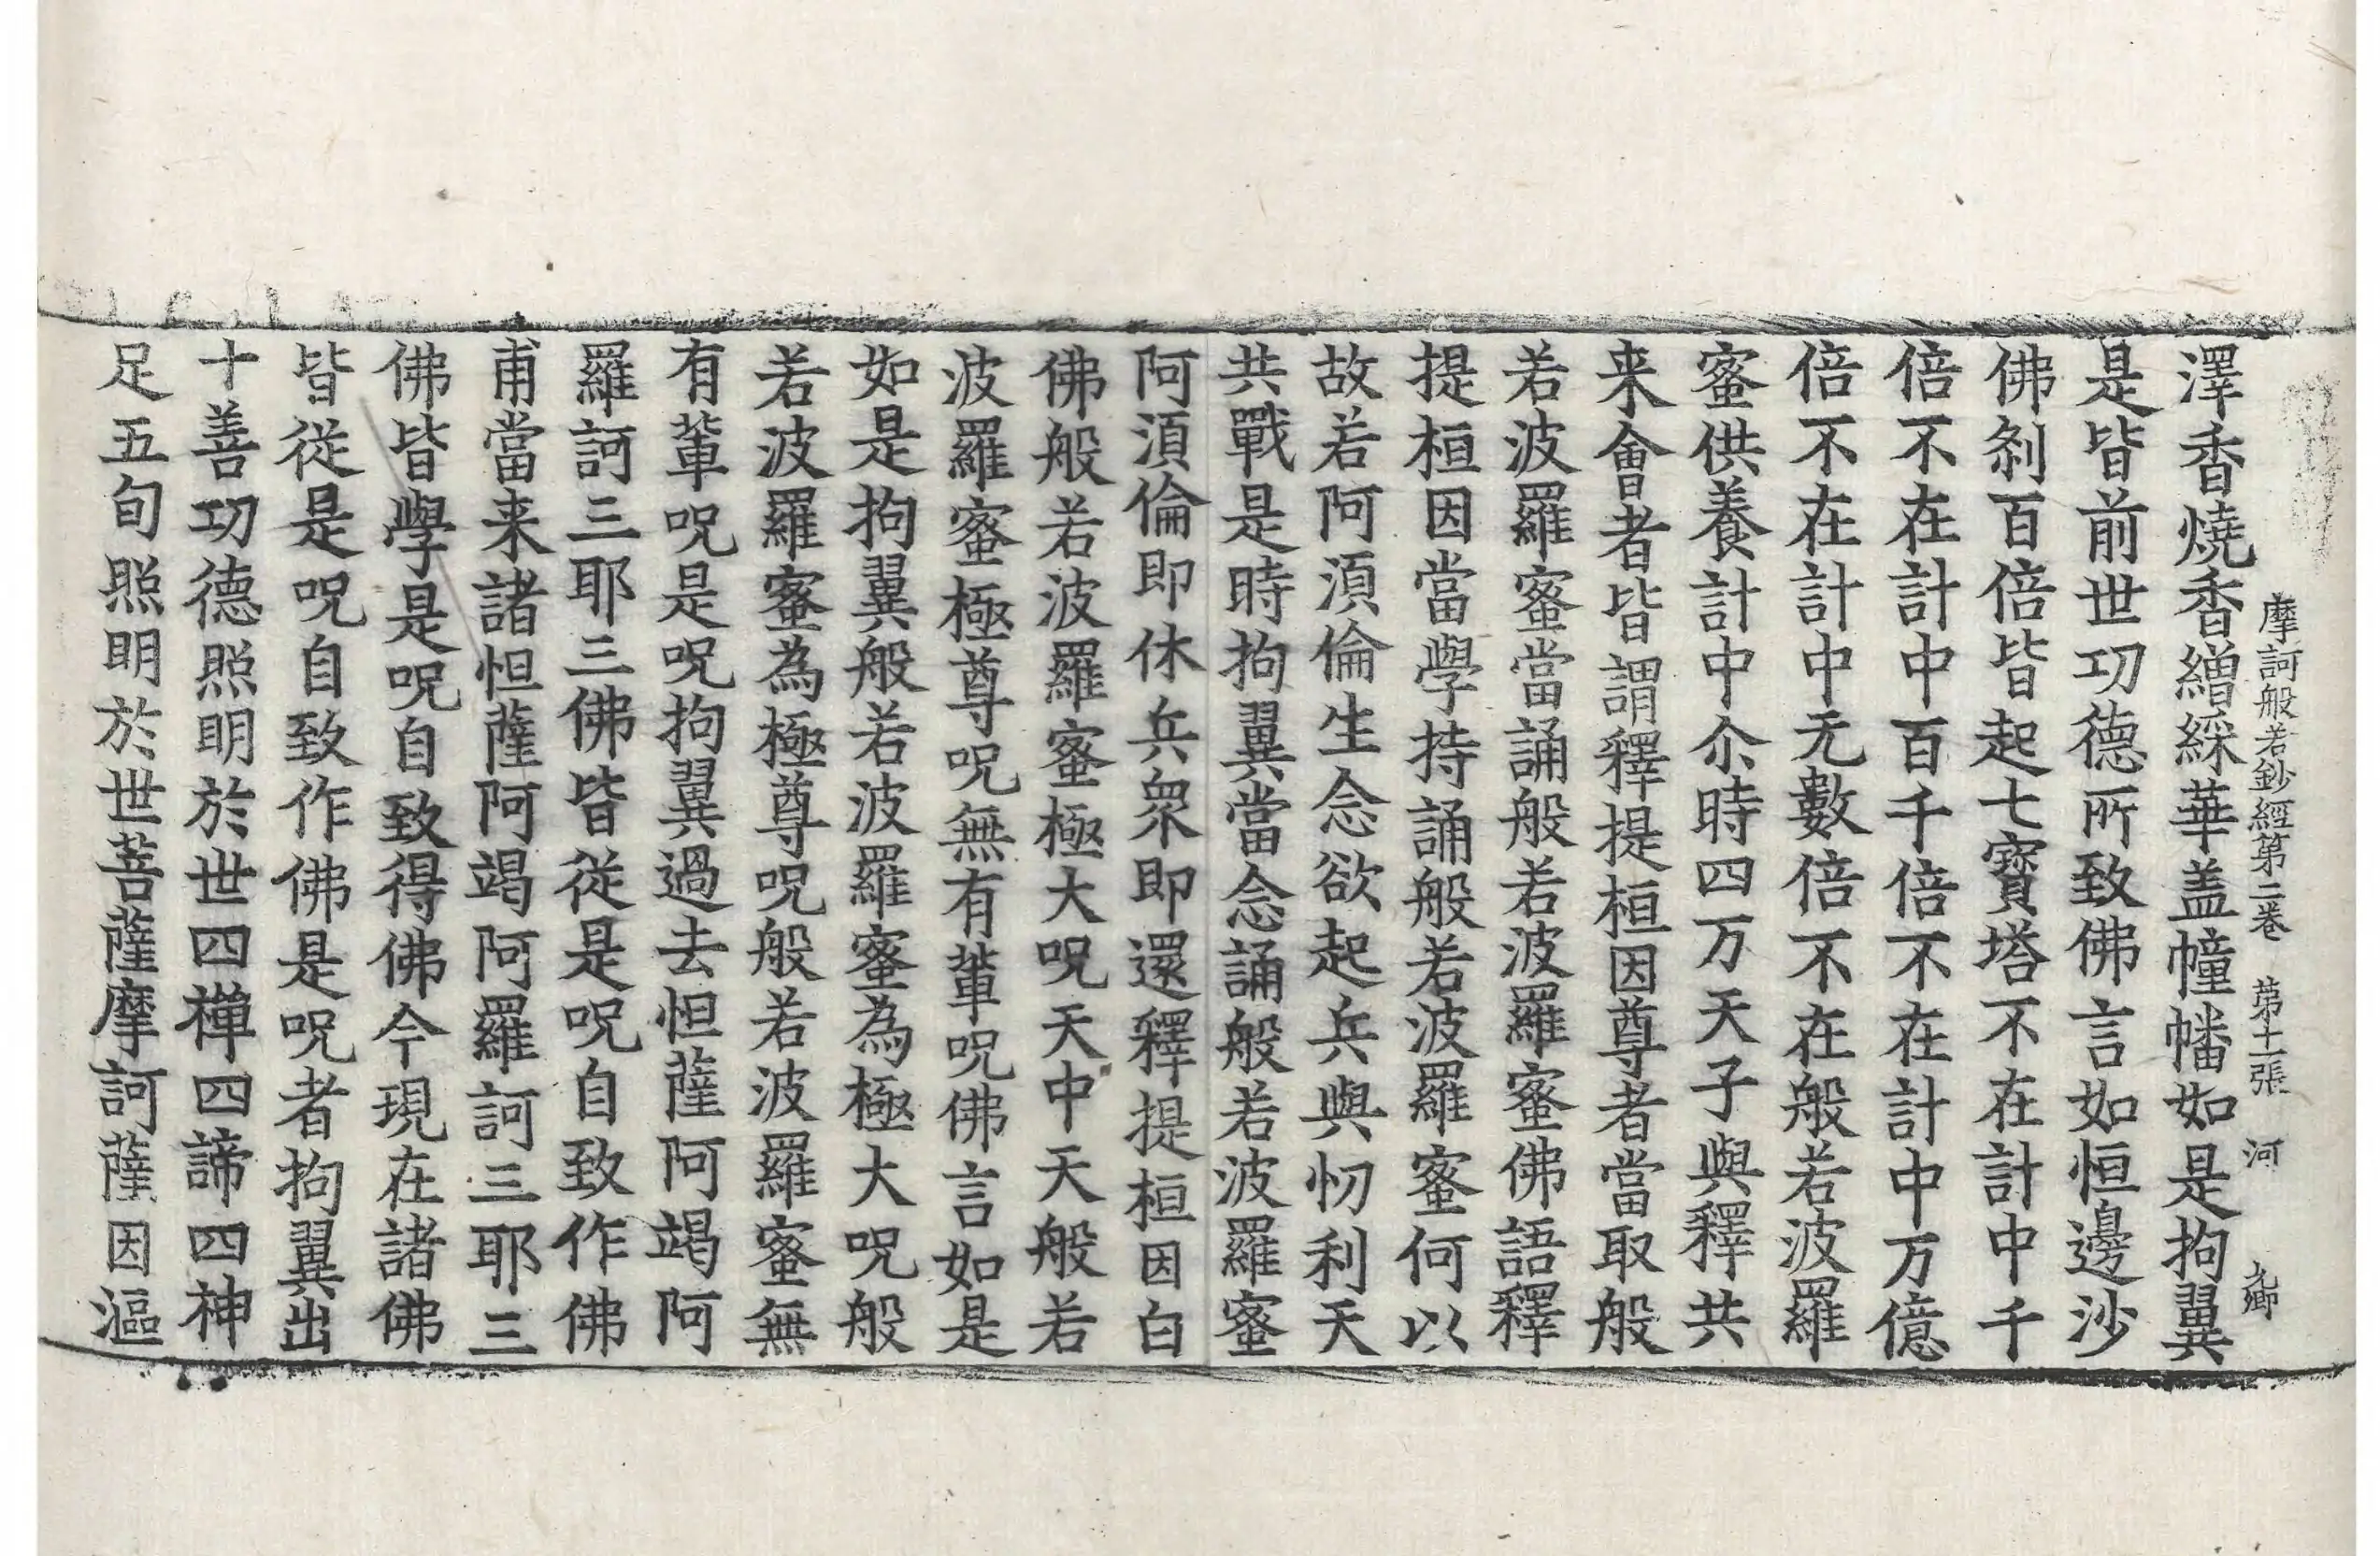 摩訶般若鈔經第二卷　第十一張　河
澤香燒香繒綵華盖幢幡如是拘翼
是皆前世功德所致佛言如恒邊沙
佛刹百倍皆起七寶塔不在計中千
倍不在計中百千倍不在計中万億
倍不在計中无數倍不在般若波羅
蜜供養計中尒時四万天子與釋共
来會者皆謂釋提桓因尊者當取般
若波羅蜜當誦般若波羅蜜佛語釋
提桓因當學持誦般若波羅蜜何以
故若阿湏倫生念欲起兵與忉利天
共戰是時拘翼當念誦般若波羅蜜
阿湏倫即休兵衆即還釋提桓因白
佛般若波羅蜜極大呪天中天般若
波羅蜜極尊呪無有軰呪佛言如是
如是拘翼般若波羅蜜為極大呪般
若波羅蜜為極尊呪般若波羅蜜無
有軰呪是呪拘翼過去怛薩阿竭阿
羅訶三耶三佛皆從是呪自致作佛
甫當来諸怛薩阿竭阿羅訶三耶三
佛皆學是呪自致得佛今現在諸佛
皆從是呪自致作佛是呪者拘翼出
十善功德照明於世四禪四諦四神
足五旬照明於世菩薩摩訶薩因漚